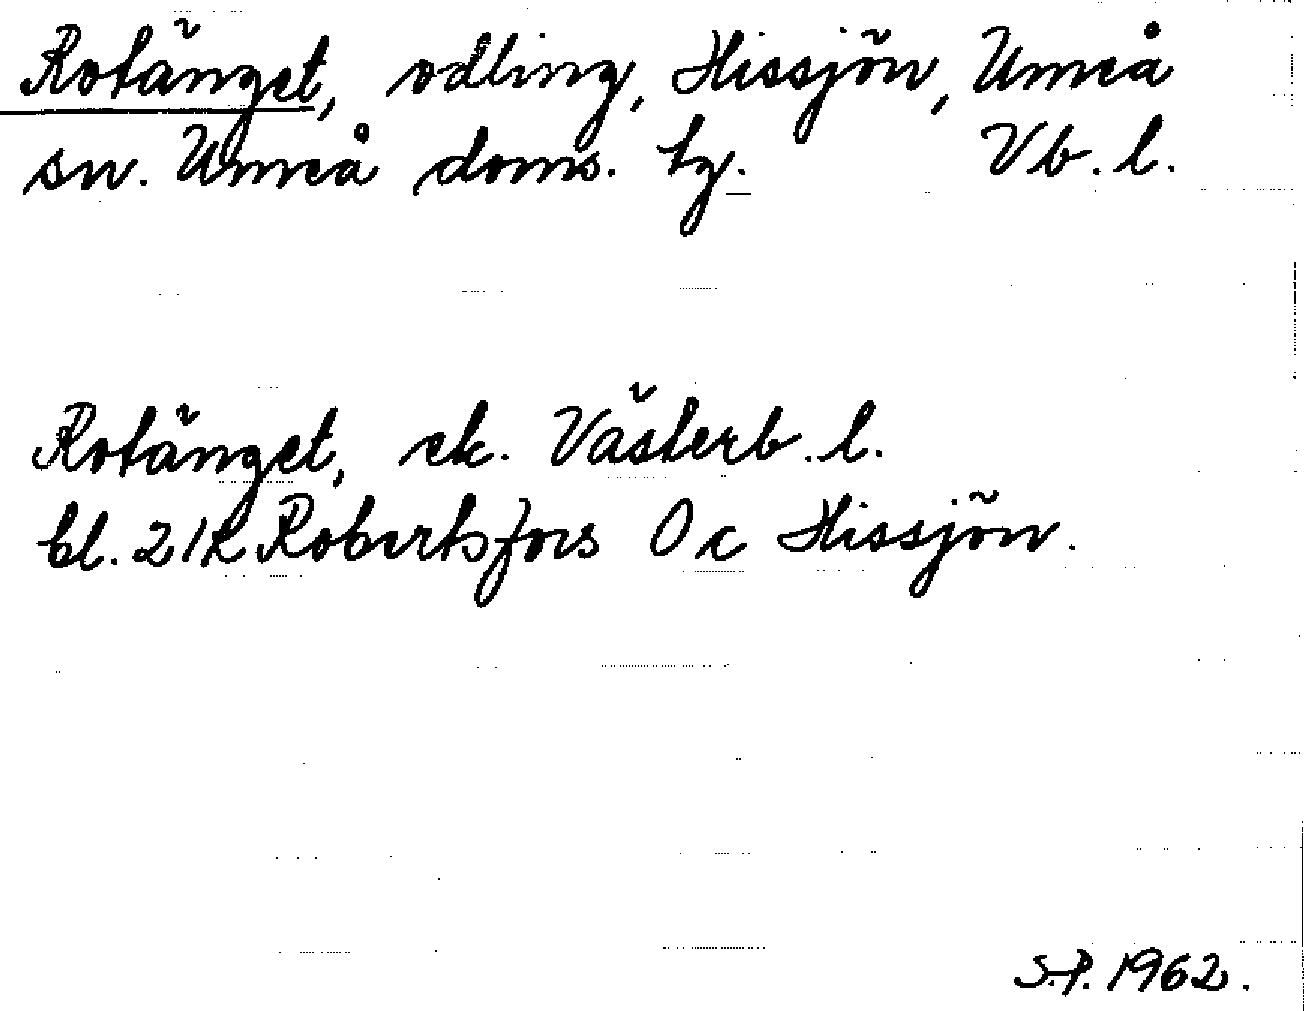 Rotänget, odling, Hissjön, Umeå
sn. Umeå doms. tg. Vb. l.
Rotänget, ek. Västerb. l.
bl. 21K Robertsfors 0c Hissjön.
S.P. 1962.